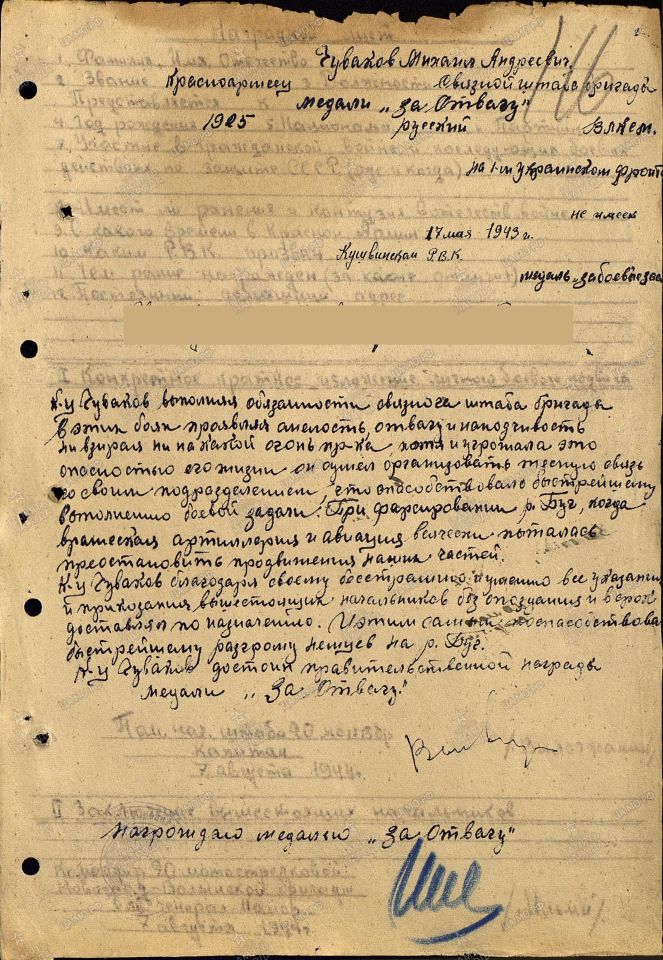 Наградной лист
1. Фамилия, Имя, Отчество Чуваков Михаил Андреевич
2. Звание Красноармеец 3. Должность Связной штаба бригады
Представляется к медали „За Отвагу"
4. Год рождения 1925 5. Националь русский ВЛКСМ.
7. Участие в гражданской войне и последующих боевых
действиях по защите СССР (где и когда) на 1-м украинском фронте
8. Имеет ли ранения и контузии в отечеств. войне не имеет
9. С какого времени в Красной Армии 17 мая 1943 г.
10. Каким РВК призван Кушвинским Р.В.К.
11. Чем ранее награжден (за какие отличия) медаль „За боев.
12. Постоянный домашний адрес
I Конкретное краткое изложение личного боевого подвига
К-ц Чуваков выполняя обязанности связного штаба бригады
В этих боях проявлял смелость, отвагу и находчивость
ни взирая ни на какой огонь пр-ка, хотя и угрожала это
опасностью его жизни он сумел организовать тесную связь
со своим подразделением, что способствовало быстрейшему
выполнению боевой задачи. При форсировании р. Буг, когда
вражеская артиллерия и авиация всячески пыталась
преостановить продвижения наших частей.
К-ц Чуваков благодаря своему бесстрашию и умению все указания
и приказания вышестоящих начальников без опоздания и в срок
доставлял по назначению. И этим самым поспособствовал
быстрейшему разгрому немцев на р. Буг.
К-ц Чуваков достоин правительственной награды
медали „За Отвагу."
Пом. нач. штаба 20
капитан
7 августа 1944 г.
II Заключение вышестоящих начальников
Награждаю медалью „За Отвагу"
Командир 20 мотострелковой
Новоград-Волынской бригады
генерал майор
7 августа 1944 г.